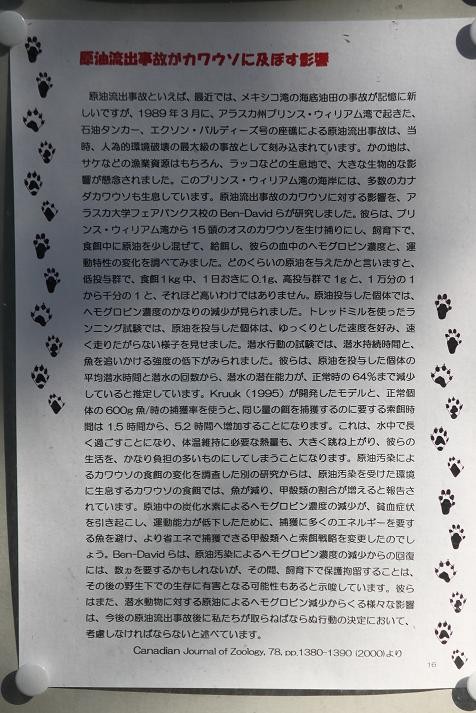 原油流出事故がカワウソに及ぼす影響
原油流出事故といえば、最近では、メキシコ湾の海底油田の事故が記憶に新
しいですが、1989年3月に、アラスカ州プリンス・ウィリアム湾で起きた、
石油タンカー、エクソン・バルディーズ号の座礁による原油流出事故は、当
時、人為的環境破壊の最大級の事故として刻み込まれています。かの地は、
サケなどの漁業資源はもちろん、ラッコなどの生息地で、大きな生物的な影
響が懸念されました。このプリンス・ウィリアム湾の海岸には、多数のカナ
ダカワウソも生息しています。原油流出事故のカワウソに対する影響を、ア
ラスカ大学フェアバンクス校のBen-Davidらが研究しました。彼らは、プリ
ンス・ウィリアム湾から15頭のオスのカワウソを生け捕りにし、飼育下で、
食餌中に原油を少し混ぜて、給餌し、彼らの血中のヘモグロビン濃度と、運
動特性の変化を調べてみました。どのくらいの原油を与えたかと言いますと、
低投与群で、食餌1kg中、1日おきに0.1g、高投与群で1gと、1万分の1
から千分の1と、それほど高いわけではありません。原油投与した個体では、
ヘモグロビン濃度のかなりの減少が見られました。トレッドミルを使ったラ
ンニング試験では、原油を投与した個体は、ゆっくりとした速度を好み、速
く走りたがらない様子を見せました。潜水行動の試験では、潜水持続時間と、
魚を追いかける強度の低下がみられました。彼らは、原油を投与した個体の
平均潜水時間と潜水の回数から、潜水の潜在能力が、正常時の64%まで減少
していると推定しています。Kruuk（1995）が開発したモデルと、正常個
体の600g魚/時の捕獲率を使うと、同じ量の餌を捕獲するのに要する索餌時
間は1.5時間から、5.2時間へ増加することになります。これは、水中で長
く過ごすことになり、体温維持に必要な熱量も、大きく跳ね上がり、彼らの
生活を、かなり負担の多いものにしてしまうことになります。原油汚染によ
るカワウソの食餌の変化を調査した別の研究からは、原油汚染を受けた環境
に生息するカワウソの食餌では、魚が減り、甲殻類の割合が増えると報告さ
れています。原油中の炭化水素によるヘモグロビン濃度の減少が、貧血症状
を引き起こし、運動能力が低下したために、捕獲に多くのエネルギーを要す
る魚を避け、より省エネで捕獲できる甲殻類へと索餌戦略を変更したのでし
ょう。Ben-Davidらは、原油汚染によるヘモグロビン濃度の減少からの回復
には、数ヵを要するかもしれないが、その間、飼育下で保護拘留することは、
その後の野生下での生存に有害となる可能性もあると示唆しています。彼ら
はまた、潜水動物に対する原油によるヘモグロビン減少からくる様々な影響
は、今後の原油流出事故後に私たちが取らねばならぬ行動の決定において、
考慮しなければならないと述べています。
Canadian Journal of Zoology, 78, pp.1380-1390 (2000)より
16